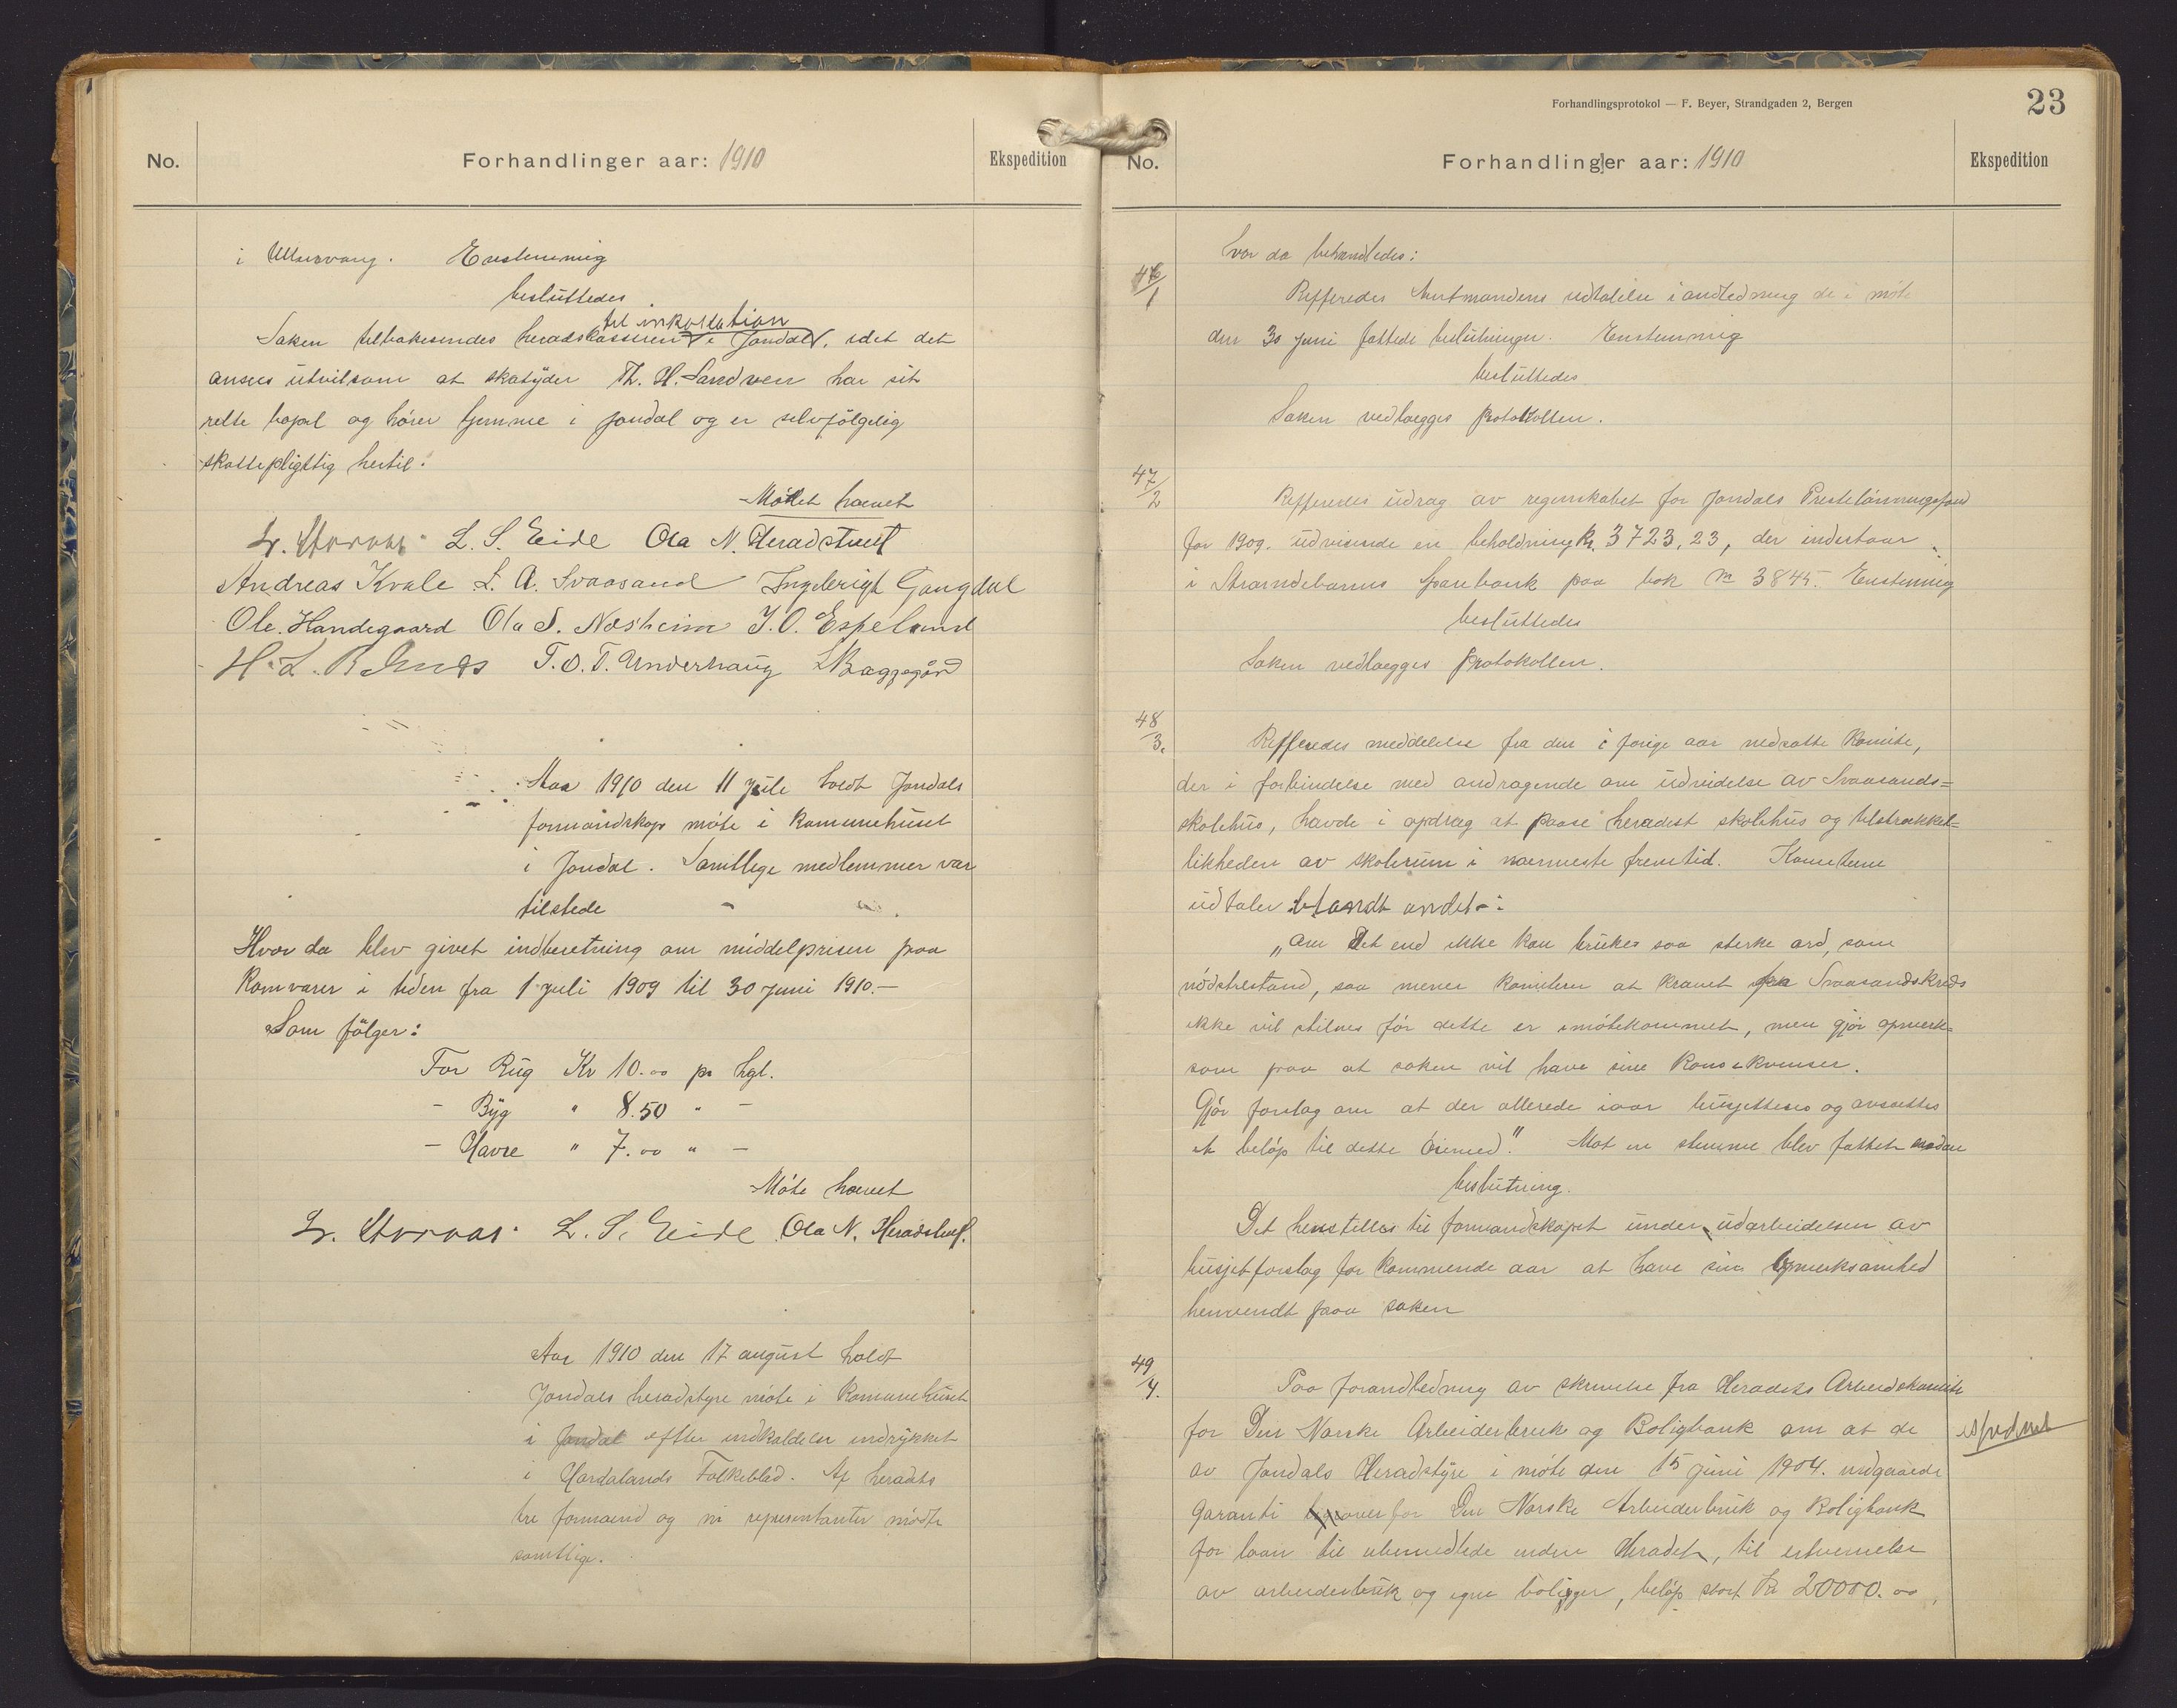 No.
Forhandlinger aar: 1910
Ekspedition
i Ullensvang. Enstemmig
besluttedes
til inkassation
Saken tilbakesendes heradskasseren i Jondal, idet det
ansees utvilsom at skatyder Th. H. Sandven har sit
rette bopæl og hører hjemme i Jondal og er selvfølgelig
skattepligttig hertil.
Møtet hævet
L. S. Eide Ola N. Heradstveit
Andreas Kvale L. A. Svaasand Ingebrigt Gangdal
Ole. Handegaard Ola S. Næsheim J. O. Espeland
T. O. T. Underhaug
Aar 1910 den 11 july holdt Jondals
formandskap møte i Kommunehuset
i Jondal. Samtlige medlemmer var
tilstede
Hvor da blev givet indberetning om middelprisen paa
Kornvarer i tiden fra 1 juli 1909 til 30 juni 1910.-
Som følger:
For Rug Kr 10.00 pr hgl.
- Byg " 8.50 " -
- Havre " 7.00 " -
Møte hævet
L. S. Eide Ola N. Heradstveit.
Aar 1910 den 17 august holdt
Jondals heradstyre møte i Kommunehuset
i Jondal efter indkaldelse indrykket
i Hordalands Folkeblad. Af heradets
tre formænd og ni representanter mødte
samtlige.
Forhandlingsprotokol — F. Beyer, Strandgaden 2, Bergen
23
No.
Forhandlinger aar: 1910
Ekspedition
hvor da behandledes:
46/1
Refferedes Amtmandens udtalelse i andledning de i møte
den 30 juni fattede beslutninger. Enstemmig
besluttedes
Saken vedlægges protokollen.
47/2
Refferedes udrag av regnskabet for Jondals Prestelønningsfond
for 1909. udvisende en beholdning Kr. 3723,23, der indestaar
i Strandebarms Sparebank paa bok No 3845. Enstemmig
besluttedes
Saken vedlægges protokollen.
48/3.
Refferedes meddelelse fra den i forige aar nedsatte Komite,
der i forbindelse med andragende om udvidelse av Svaasands=
skolehus, havde i opdrag at paase heradest skolehus og tilstrækkel=
likheden av skolerum i nærmeste fremtid. Komiteen
udtaler blandt andet:
„Om det end ikke kan brukes saa sterke ord, som
nødstilstand, saa mener Komiteen at kravet fra Svaasandskreds
ikke vil stilnes før dette er imøtekommet, men gjør opmerk=
som paa at saken vil have sine Konsekvenser.
Gjør forslag om at der allerede iaar busjetteres og avsættes
et beløp til dette øiemed." Mot en stemme blev fattet sadan
beslutning.
Det henstilles til formandskapet under udarbeidelsen av
busjetforslag for kommende aar at have sin opmerksamhed
henvendt paa saken
49/4.
Paa foranledning av skrivelse fra Heradets Arbeidskomite
for Den Norske Arbeiderbruk og Boligbank om at de
av Jondals Heradstyre i møte den 15 juni 1904. indgaaede
garanti overfor Den Norske Arbeiderbruk og Boligbank
for laan til ubemidlede inden Heradet, til erhvervelse
av arbeiderbruk og egne boligger, beløp stort Kr 20000.00,
espederet